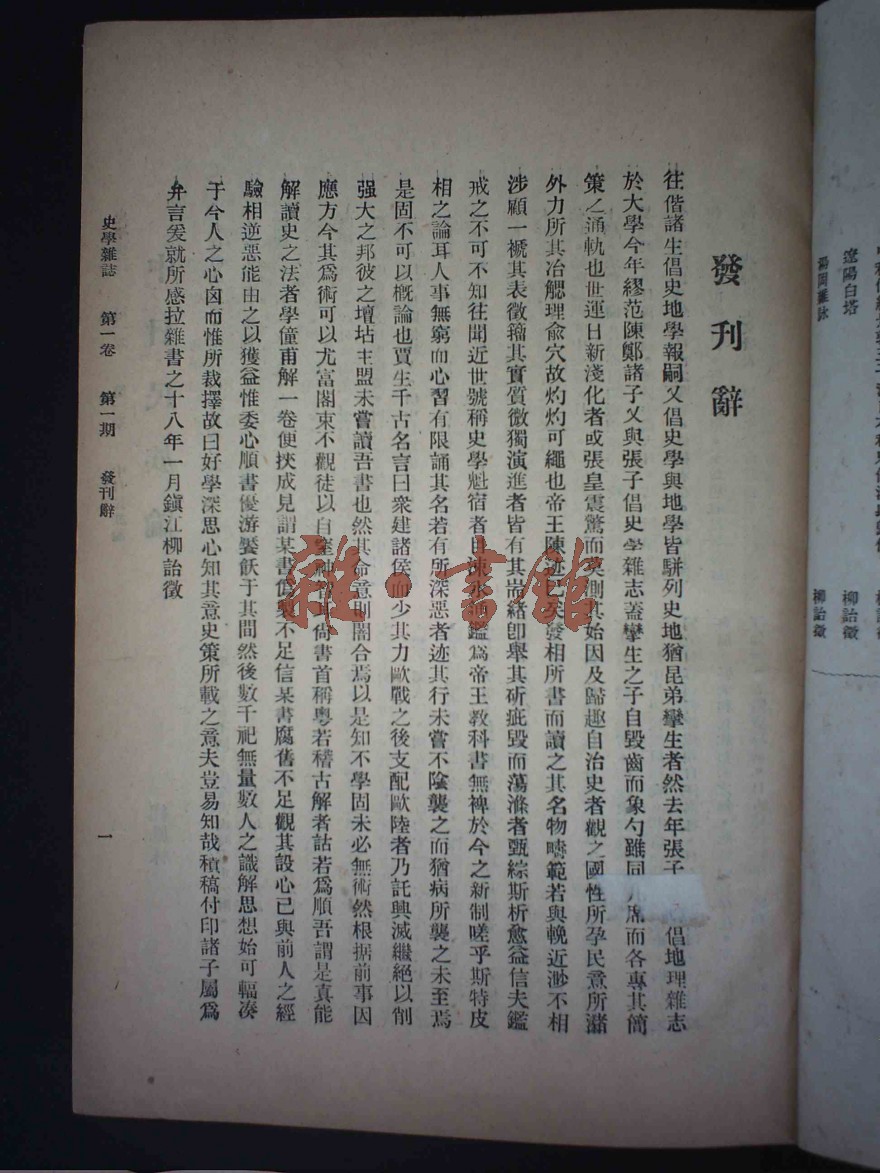 發刊辭
往偕諸生倡史地學報嗣又倡史學與地學皆駢列史地猶昆弟孿生者然去年張子 倡地理雜志
於大學今年繆范陳鄭諸子又與張子倡史學雜志蓋孿生之子自毀齒而象勺雖同 席而各專其簡
策之涌軌也世運日新淺化者或張皇震驚而莫測其始因及歸趣自治史者觀之國性所孕民意所瀦
外力所其冶䚡理俞穴故灼灼可繩也帝王陳迹 發相所書而讀之其名物疇範若與輓近渺不相
涉顧一襫其表徵籀其實質微獨演進者皆有其耑緒卽舉其斫疵毀而蕩滌者甄綜斯析愈益信夫鑑
戒之不可不知往聞近世號稱史學魁宿者目涑水通鑑爲帝王敎科書無裨於今之新制嗟乎斯特皮
相之論耳人事無窮而心習有限誦其名若有所深惡者迹其行未嘗不陰襲之而猶病所襲之未至焉
是固不可以概論也賈生千古名言曰衆建諸侯而少其力歐戰之後支配歐陸者乃託興滅繼絕以削
强大之邦彼之壇坫主盟未嘗讀吾書也然其命意則闇合焉以是知不學固未必無術然根据前事因
應方今其爲術可以尤富閣束不觀徒以自窒 尙書首稱粵若稽古解者詁若爲順吾謂是真能
解讀史之法者學僮甫解一卷便挾成見謂某書僞製不足信某書腐舊不足觀其設心已與前人之經
驗相逆惡能由之以獲益惟委心順書優游饜飫于其間然後數千祀無量數人之識解思想始可輻湊
于今人之心囪而惟所裁擇故曰好學深思心知其意史策所載之意夫豈易知哉積稿付印諸子屬爲
弁言爰就所感拉雜書之十八年一月鎭江柳詒徵
史學雜誌 第一卷 第一期 發刊辭 一
雜·書館
遼陽白塔 柳詒徵
柳詒徵